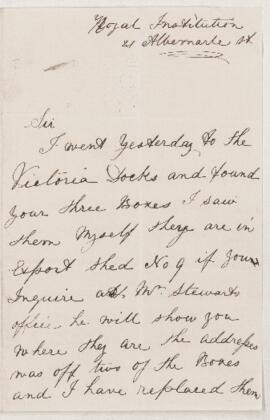 Royal Institution
21 Albemarle St.
Sir
I went yesterday to the
Victoria Docks and found
your three Boxes I saw
them Myself they are in
Export shed No 9 if you
Inquire at Mr. Stewarts
office he will show you
where they are the addresses
was off two of the Boxes
and I have replaced them